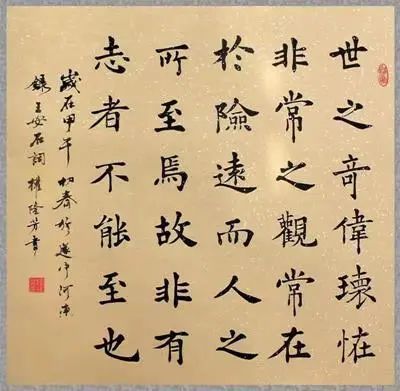 世之竒偉瓌恠
非常之觀常在
於險遠而人之
所至焉故非有
志者不能至也
歲在甲午初春於
錄王安石詞權隆芳書